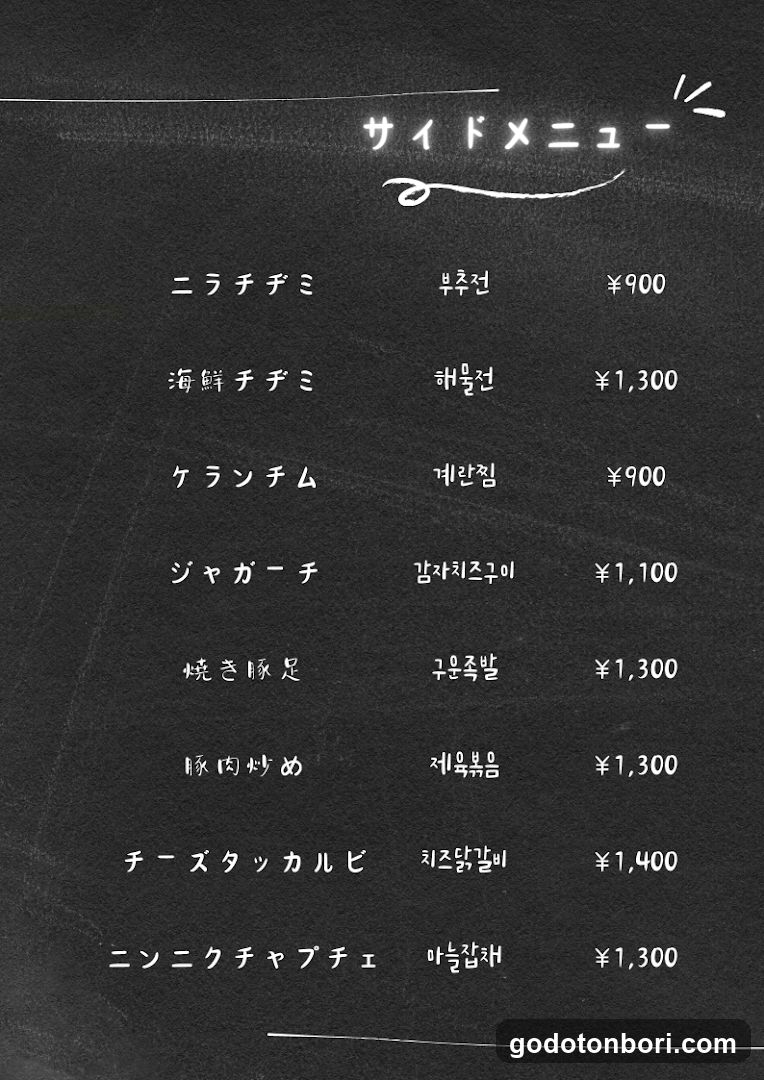 サイドメニュー
ニラチヂミ 부추전 ¥900
海鮮チヂミ 해물전 ¥1,300
ケランチム 계란찜 ¥900
ジャガーチ 감자치즈구이 ¥1,100
焼き豚足 구운족발 ¥1,300
豚肉炒め 제육볶음 ¥1,300
チーズタッカルビ 치즈닭갈비 ¥1,400
ニンニクチャプチェ 마늘잡채 ¥1,300
godotonbori.com